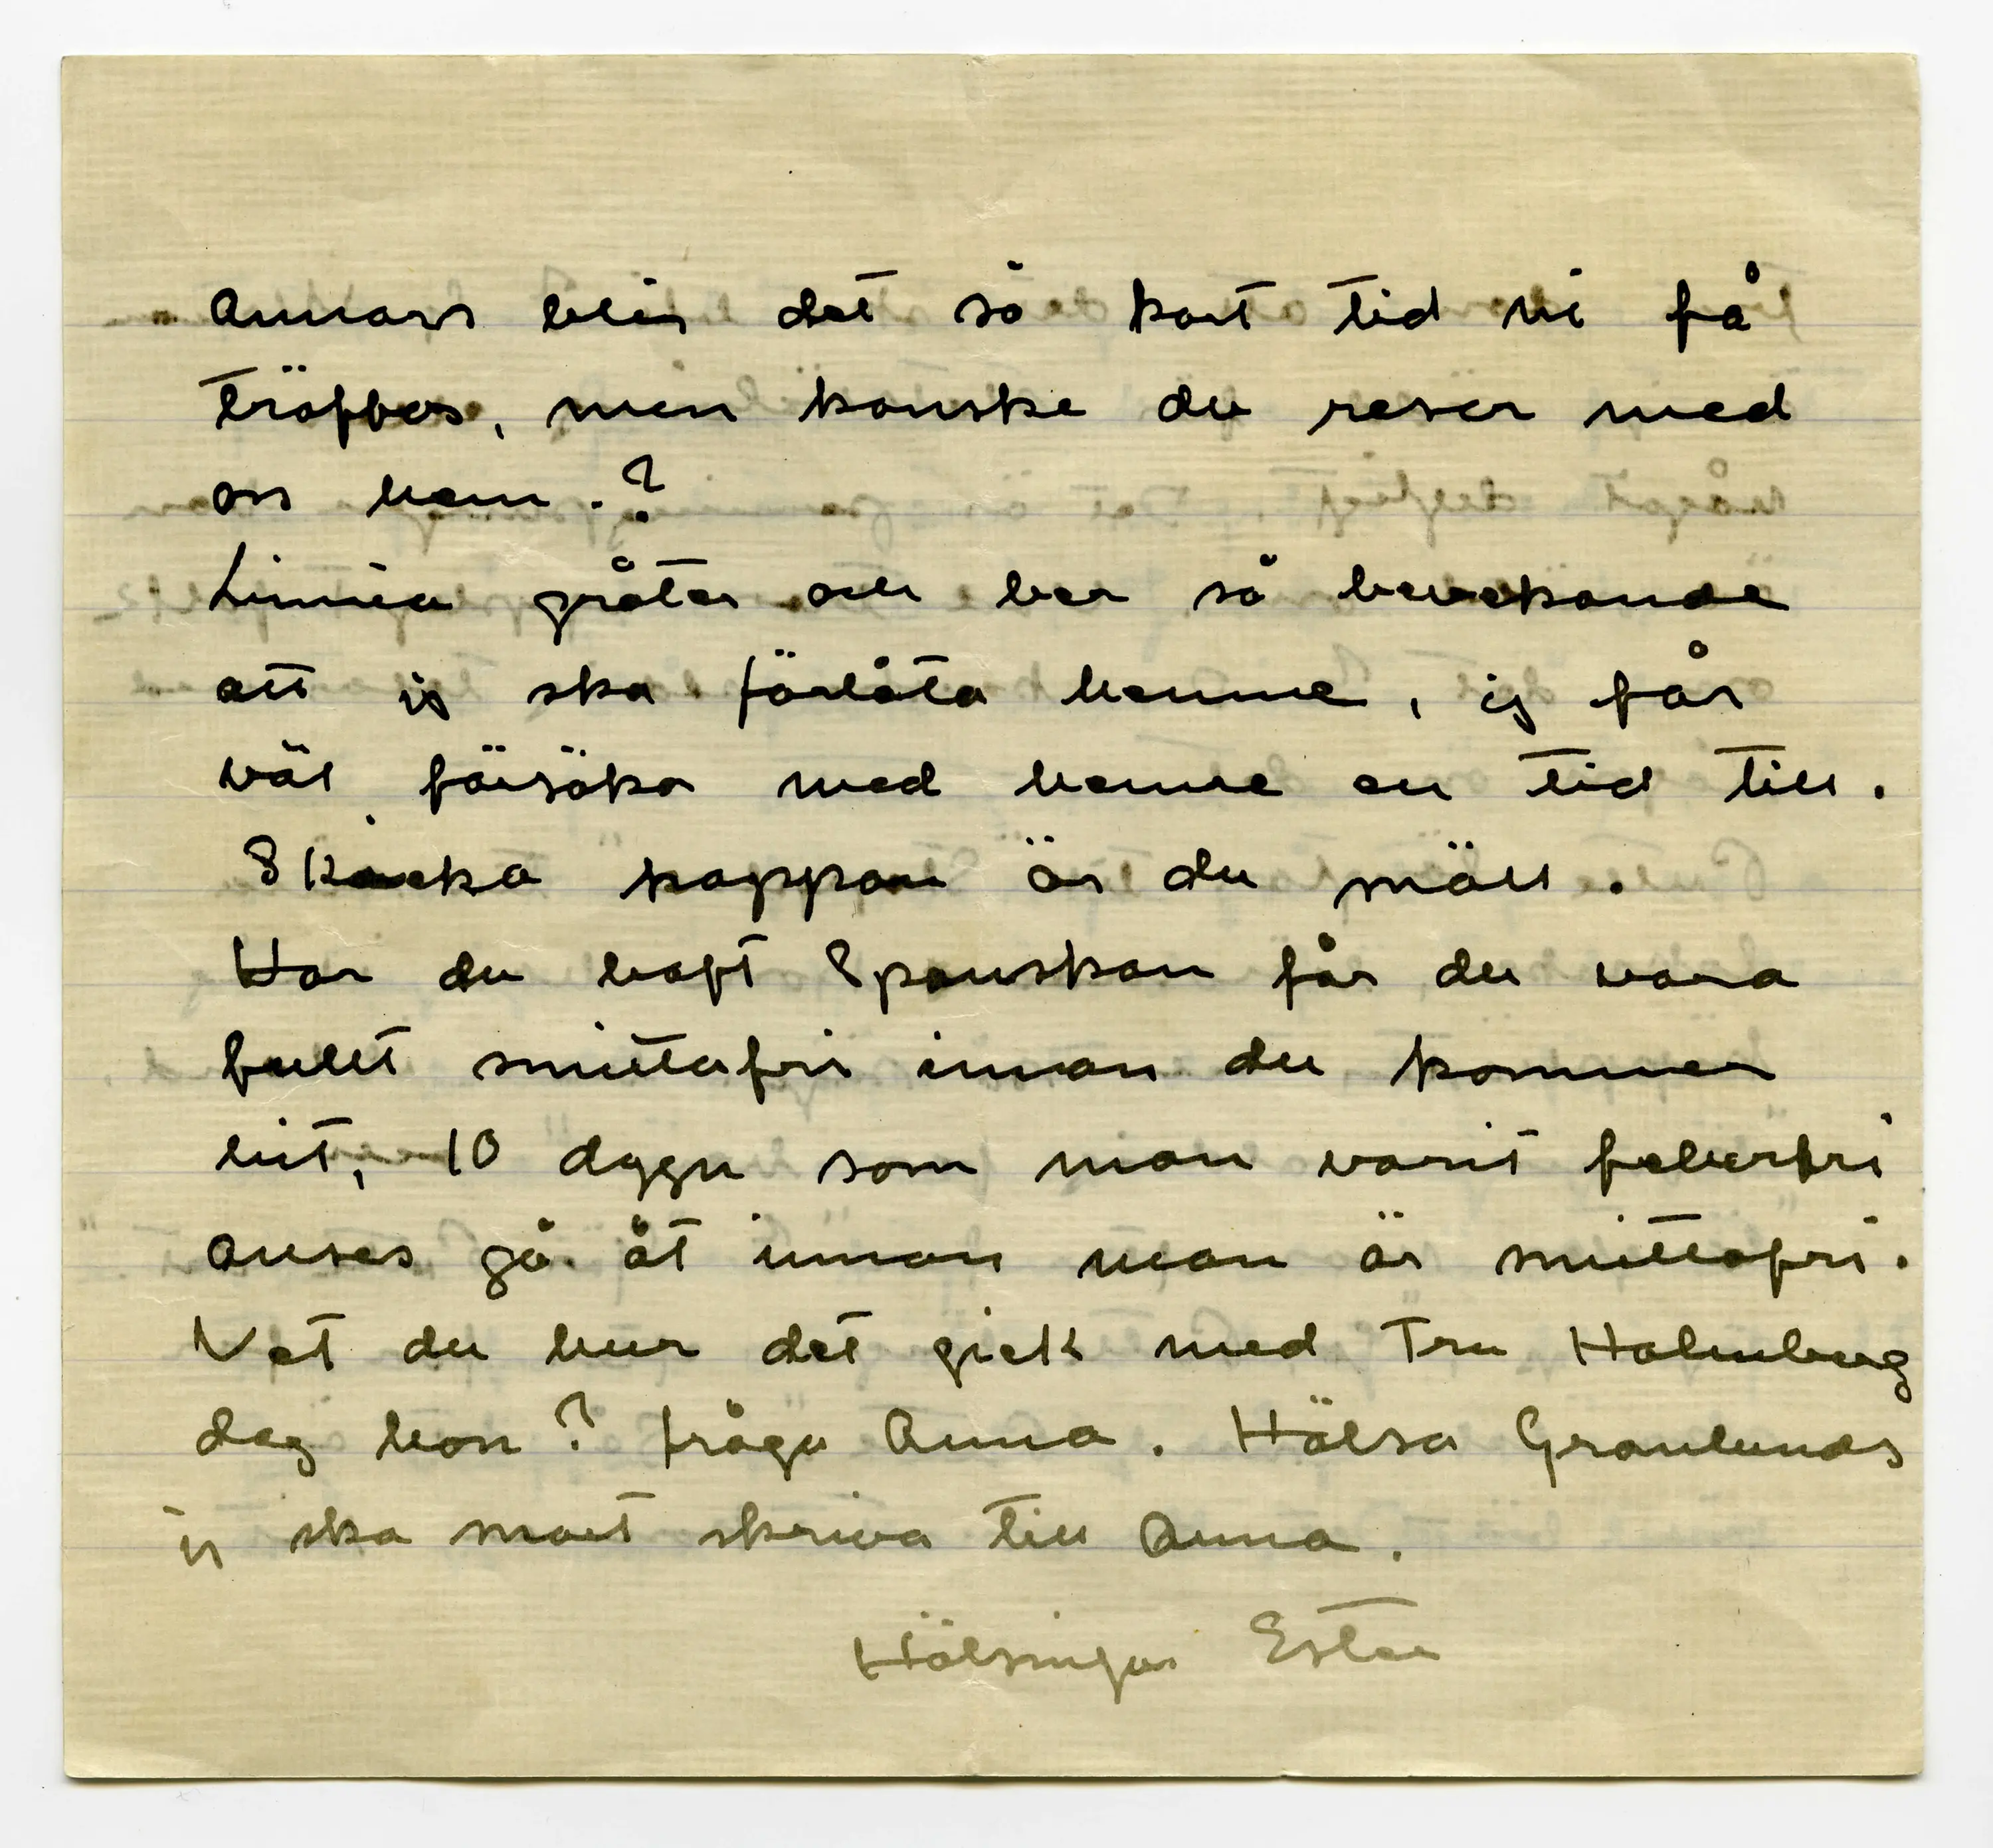 Annars blir det så kort tid vi få
träffas, men kanske du reser med
oss hem.?
Linnéa gråter och ber så bevekande
att jg ska förlåta henne, jg får
väl försöka med henne en tid till.
Skicka kappan är du snäll.
Har du haft Spanskan får du vara
fullt smittafri innan du kommer
hit, 10 dygn som man varit feberfri
anses gå åt innan man är smittofri.
Vet du hur det gick med Fru Holmberg
dog hon? fråga Anna. Hälsa Granlunds
jg ska snart skriva till Anna.
Hälsningar Ester